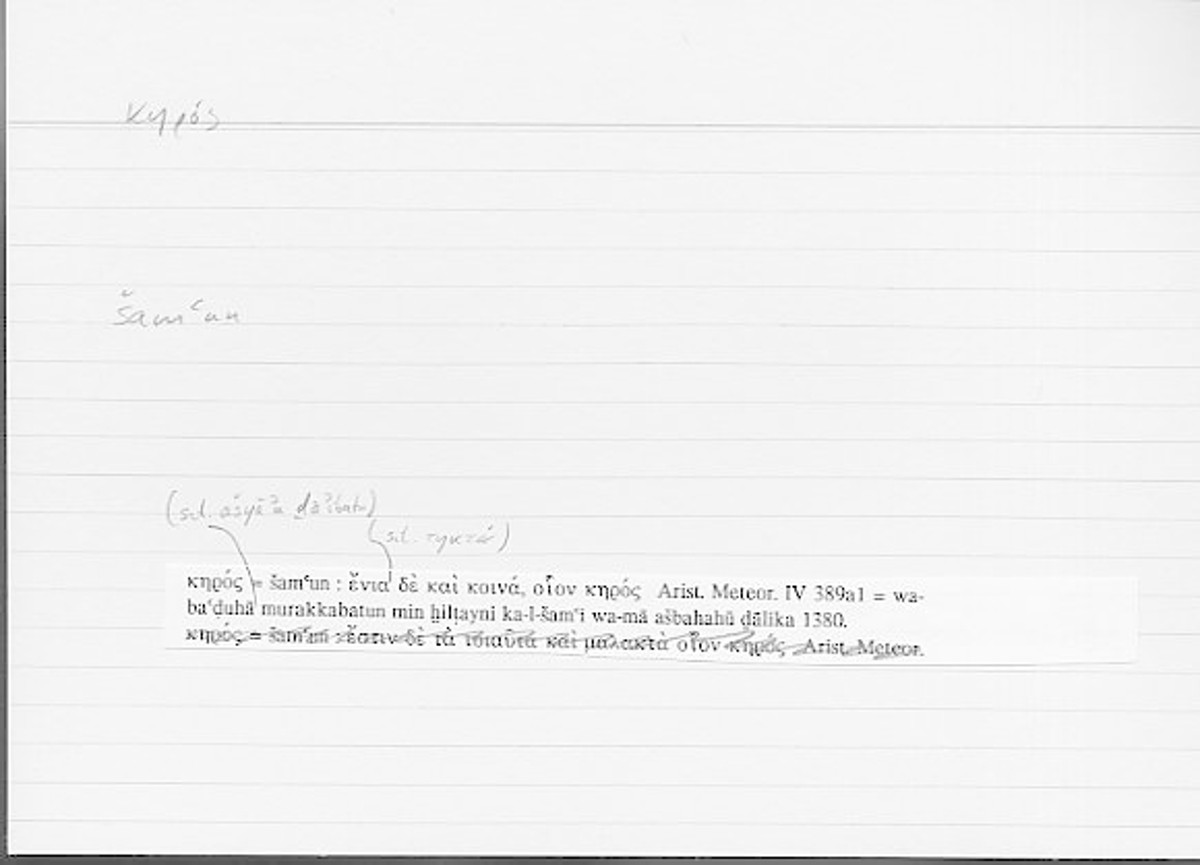 κηρός
šamʿun
(scil. ašyāʾa ḏāʾibatu)
(scil. τηκτά)
κηρός = šamʿun : ἔνια δὲ καὶ κοινά, οἷον κηρός Arist. Meteor. IV 389a1 = wa-
baʿḍuhā murakkabatun min ḫilṭayni ka-l-šamʿi wa-mā ašbahahū ḏālika 1380.
κηρός = šamʿun : ἔστιν δὲ τὰ τοιαῦτα καὶ μαλακτὰ οἷον κηρός Arist. Meteor.